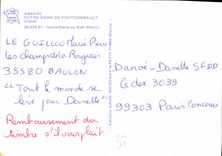 ABBAYE
NOTRE-DAME DE FONTGOMBAULT
Notre-Dame du Bien Mourir
LE GUILLOU Marie
les champs
35580 BAULON
"Tout le monde se
lève pour Danette"
Remboursement du
timbre s'il vous plaît
Danoé - Danette SFDD
Cedex 3039
99303 Paris Concours